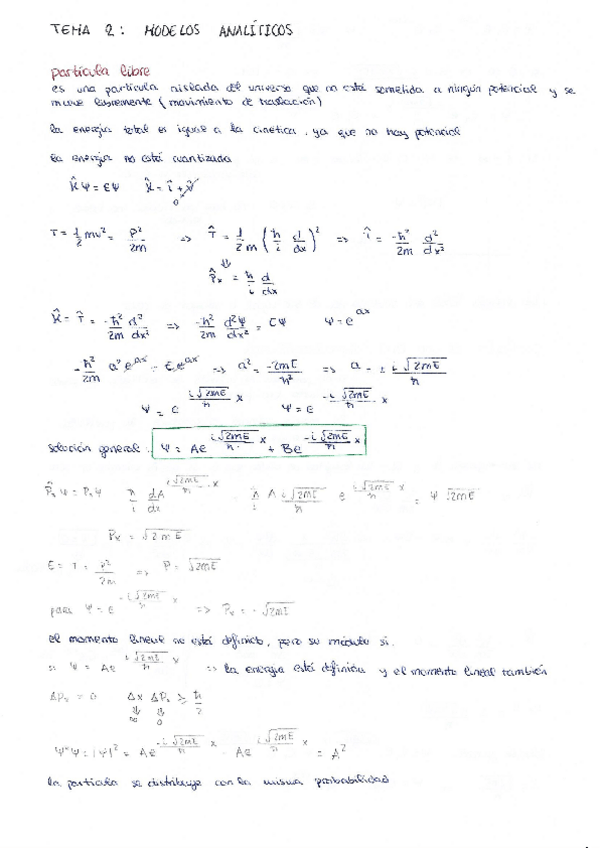 TEMA 2: MODELOS ANALÍTICOS
partícula libre
es una partícula aislada del universo que no está sometida a ningún potencial y se
mueve libremente (movimiento de traslación)
la energía total es igual a la cinética, ya que no hay potencial
la energía no está cuantizada
Ĥψ = Eψ Ĥ = T̂ + V̂ 0
T = 1/2 mv² = p²/2m => T̂ = 1/2m (ħ/i d/dx)² => T̂ = -ħ²/2m d²/dx²
p̂x = ħ/i d/dx
Ĥ = T̂ = -ħ²/2m d²/dx² => -ħ²/2m d²ψ/dx² = Eψ ψ = e^ax
-ħ²/2m a² e^ax = E e^ax => a² = -2mE/ħ² => a = ± i√2mE/ħ
ψ = e^(i√2mE/ħ x) ψ = e^(-i√2mE/ħ x)
solución general: ψ = Ae^(i√2mE/ħ x) + Be^(-i√2mE/ħ x)
P̂xψ = Pxψ ħ/i dA/dx e^(i√2mE/ħ x) = ħ/i A i√2mE/ħ e^(i√2mE/ħ x) = ψ √2mE
Px = √2mE
E = T = p²/2m => P = √2mE
para ψ = e^(-i√2mE/ħ x) => Px = -√2mE
el momento lineal no está definido, pero su módulo sí.
si ψ = Ae^(i√2mE/ħ x) => la energía está definida y el momento lineal también
ΔPx = 0 Δx ΔPx ≥ ħ/2
∞ 0
ψ*ψ = |ψ|² = Ae^(-i√2mE/ħ x) · Ae^(i√2mE/ħ x) = A²
la partícula se distribuye con la misma probabilidad